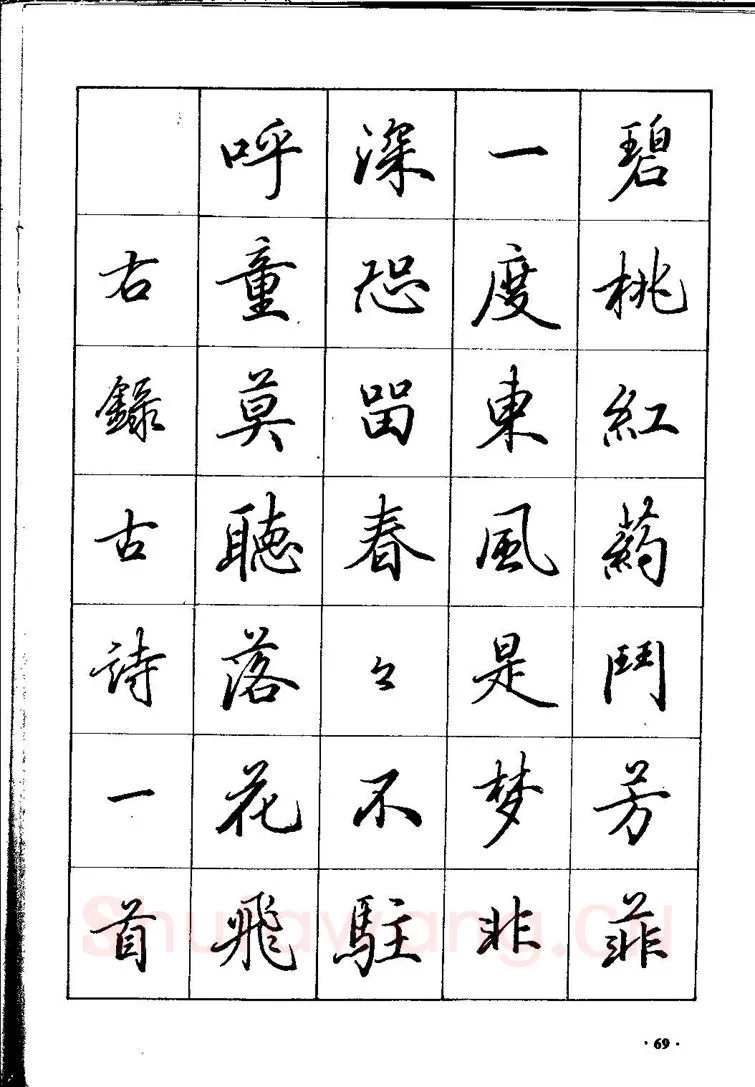 碧桃紅藥鬥芳菲
一度東風是梦非
深恐畱春々不駐
呼童莫聽落花飛
右錄古詩一首
Shufawang.Cn
·69·